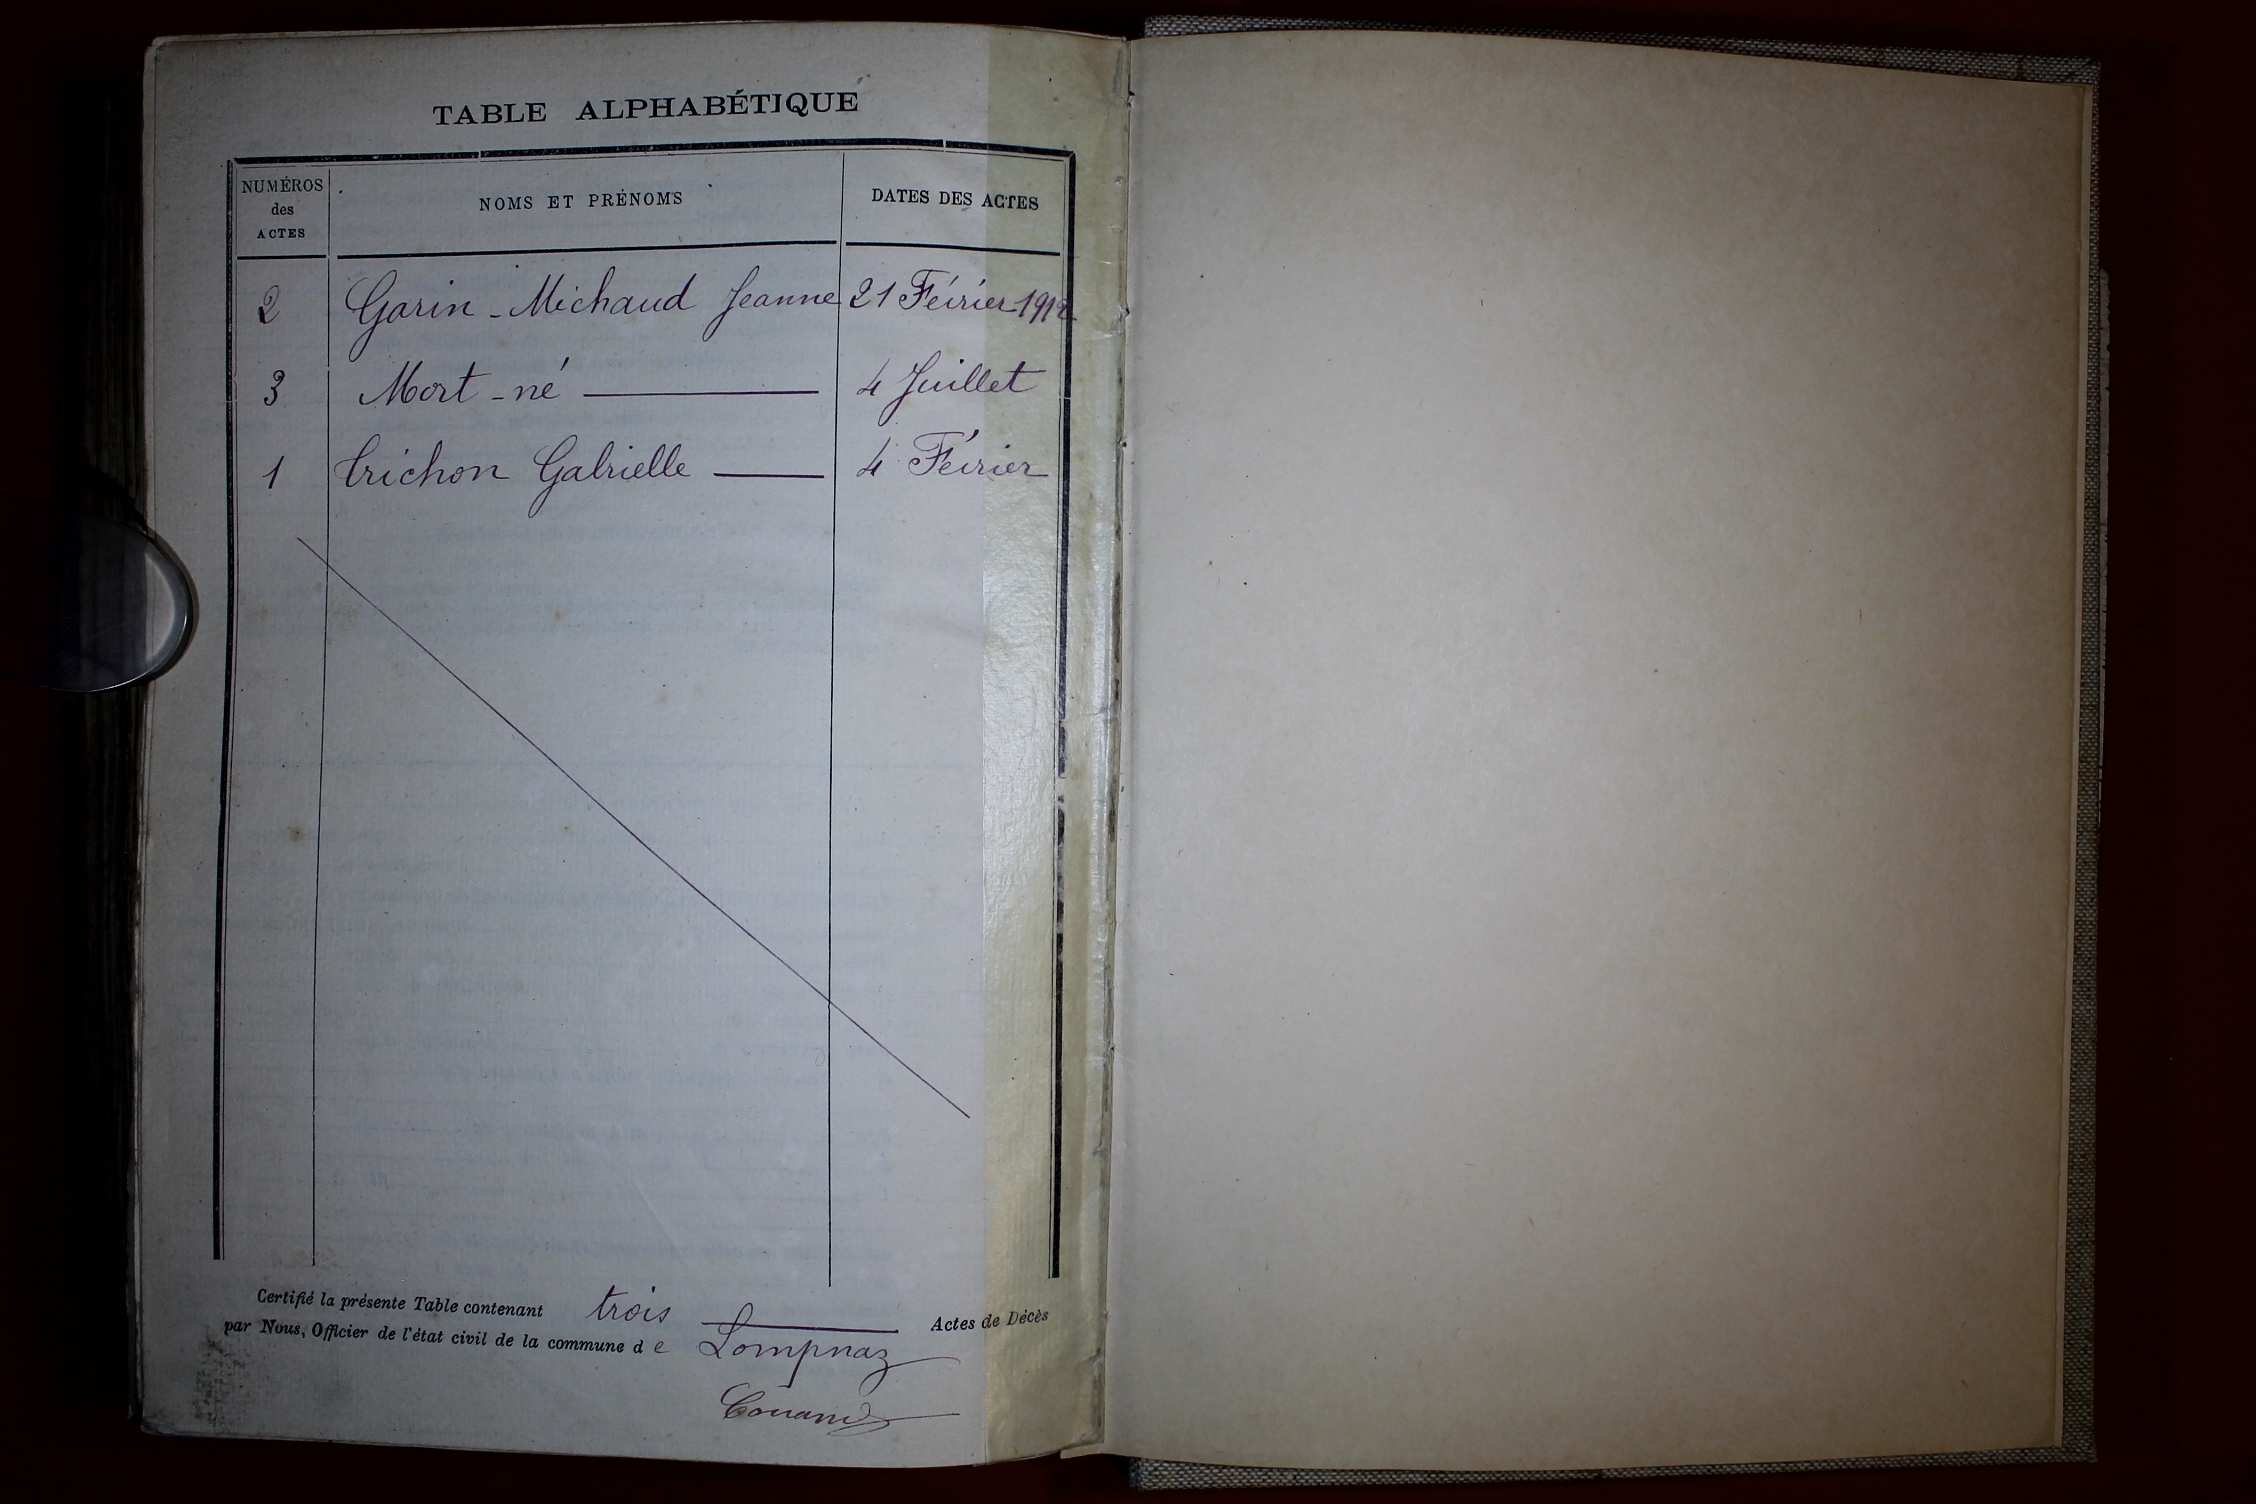 TABLE ALPHABÉTIQUE
NUMÉROS
des
ACTES
NOMS ET PRÉNOMS
DATES DES ACTES
2 Garin - Michaud Jeanne 21 Février 1912
3 Mort - né 4 Juillet
1 Trichon Gabrielle 4 Février
Certifié la présente Table contenant trois Actes de Décès
par Nous, Officier de l'état civil de la commune de Lompnaz